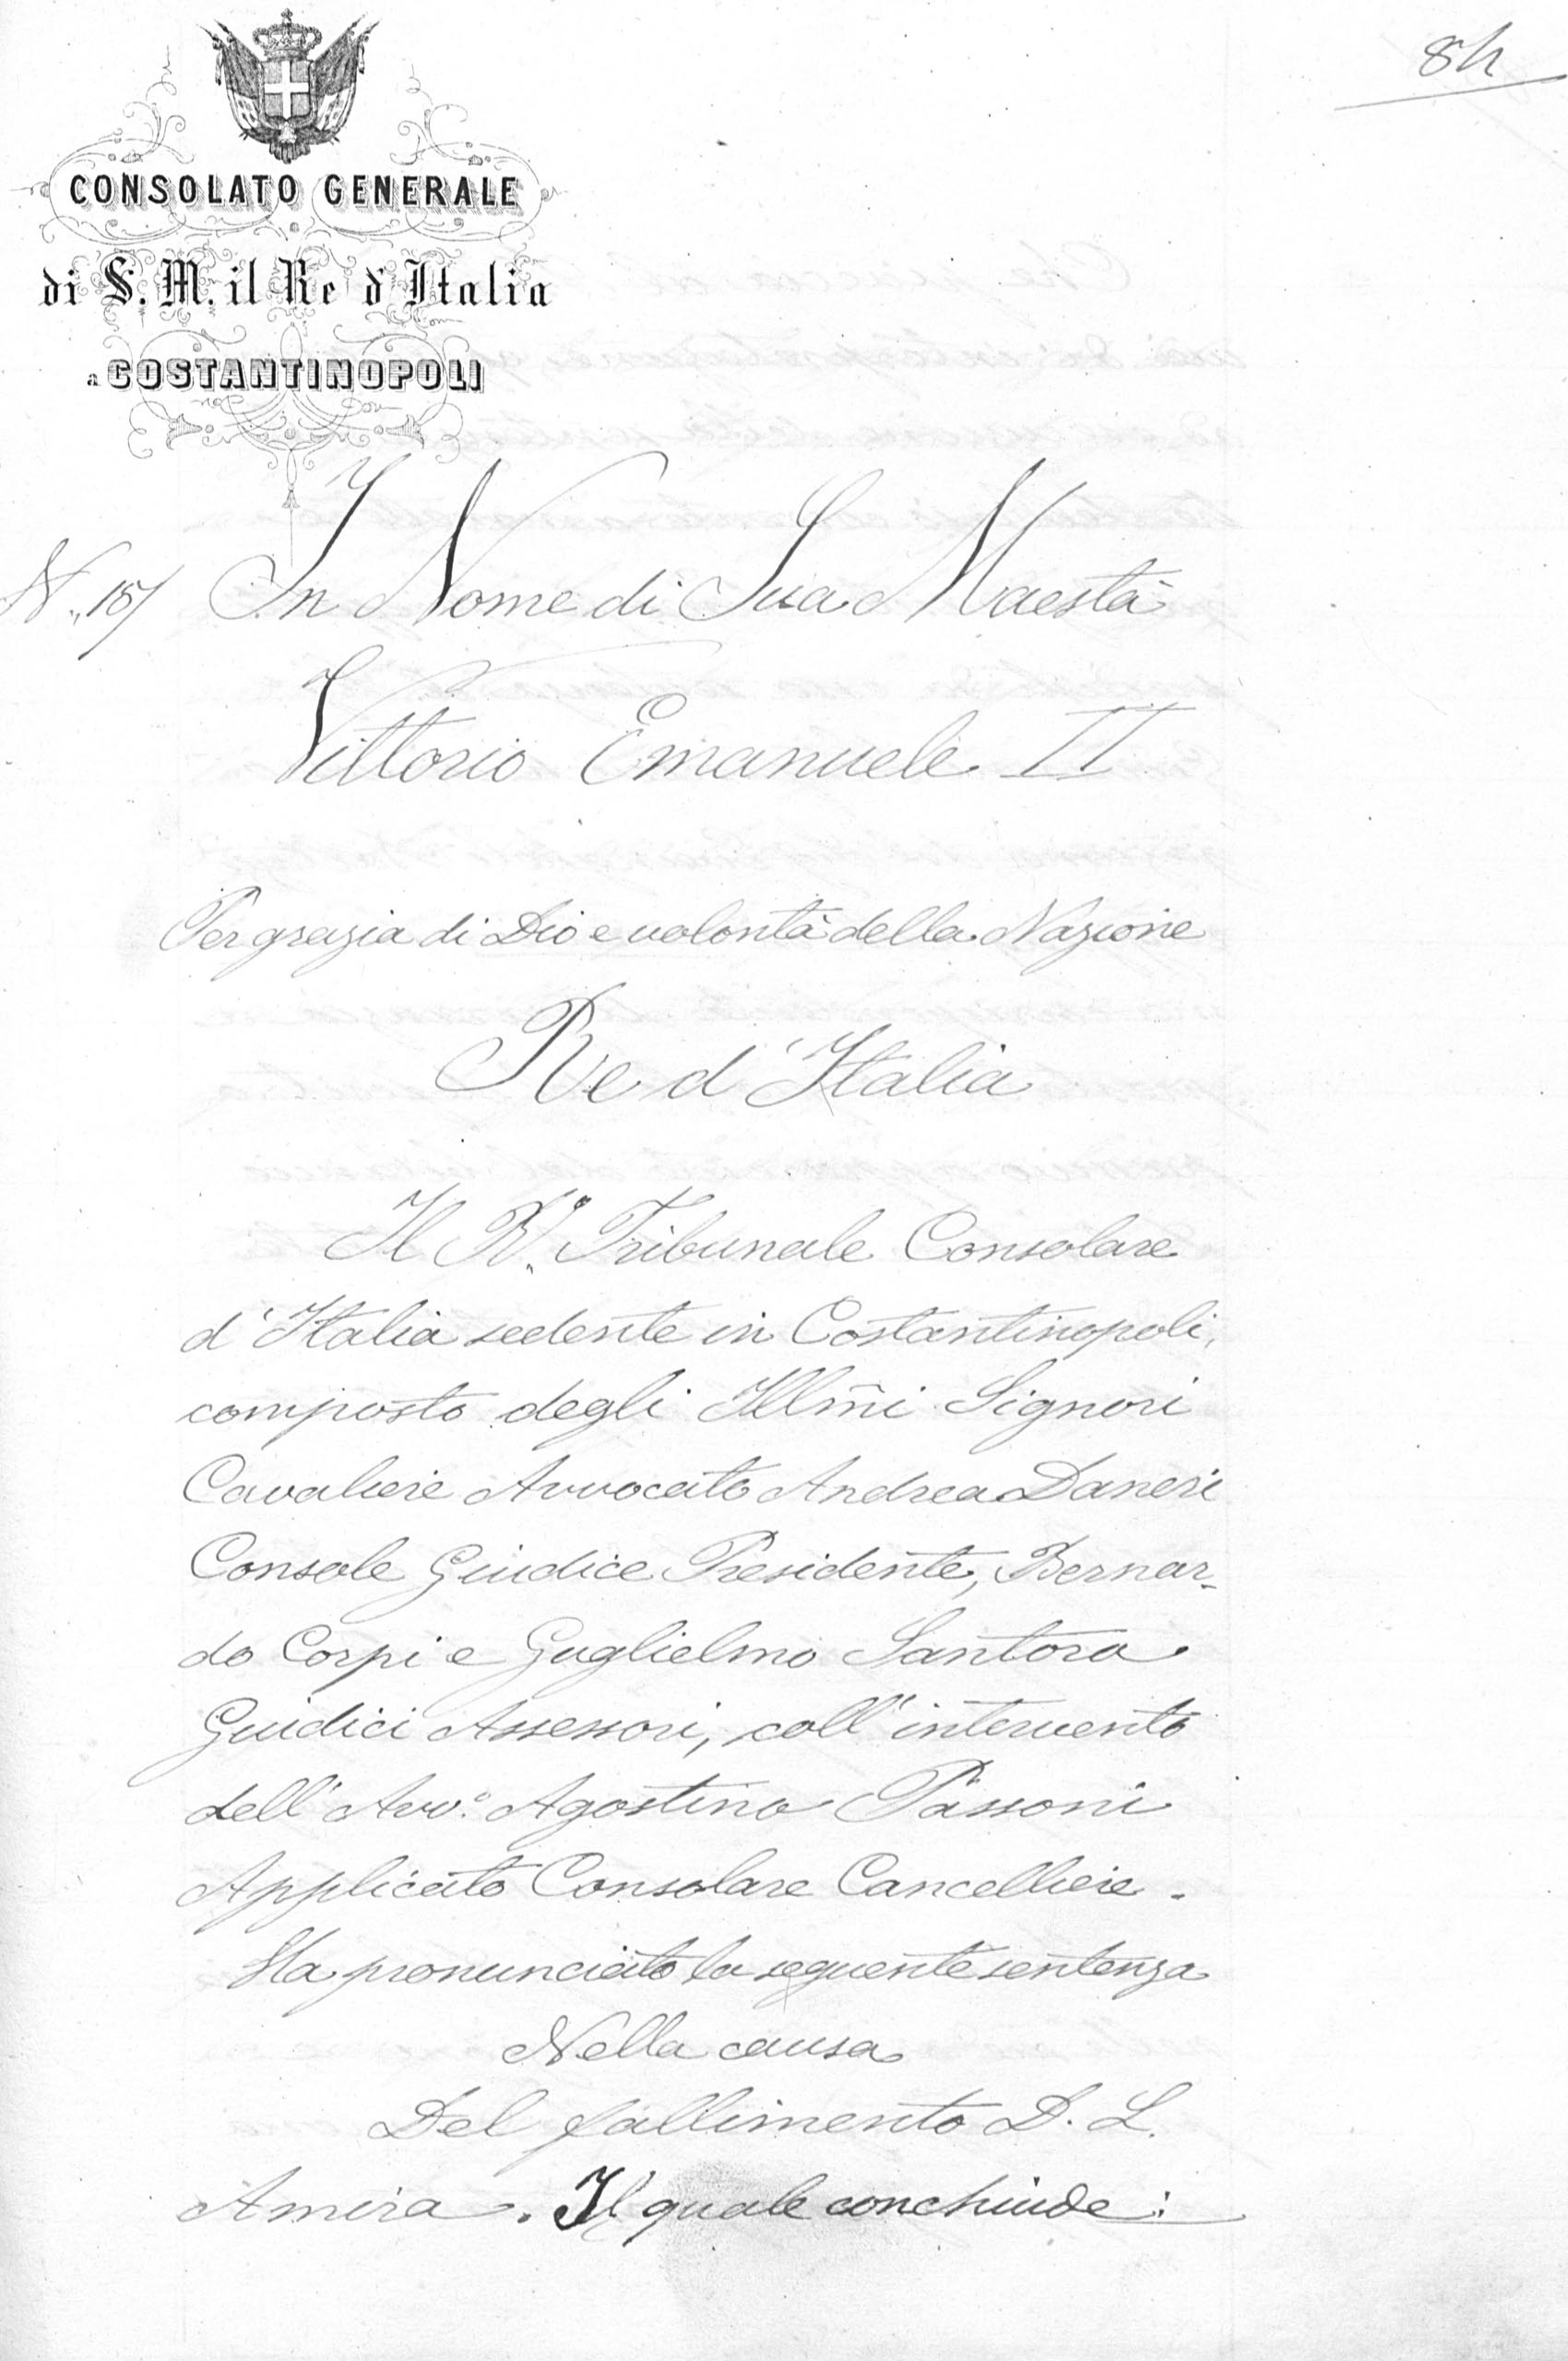 84
CONSOLATO GENERALE
di S. M. il Re d'Italia
a COSTANTINOPOLI
N. 157 In Nome di Sua Maestà
Vittorio Emanuele II
Per grazia di Dio e volontà della Nazione
Re d'Italia
Il R. Tribunale Consolare
d'Italia sedente in Costantinopoli,
composto degli Illmi Signori
Cavaliere Avvocato Andrea Daneri
Console Giudice Presidente, Bernar-
do Corpi e Guglielmo Santoro
Giudici Assessori, coll'intervento
dell'Avv.o Agostino Passoni
Applicato Consolare Cancelliere.
Ha pronunciato la seguente sentenza
Nella causa
Del fallimento D. L.
Amira. Il quale conchiude: